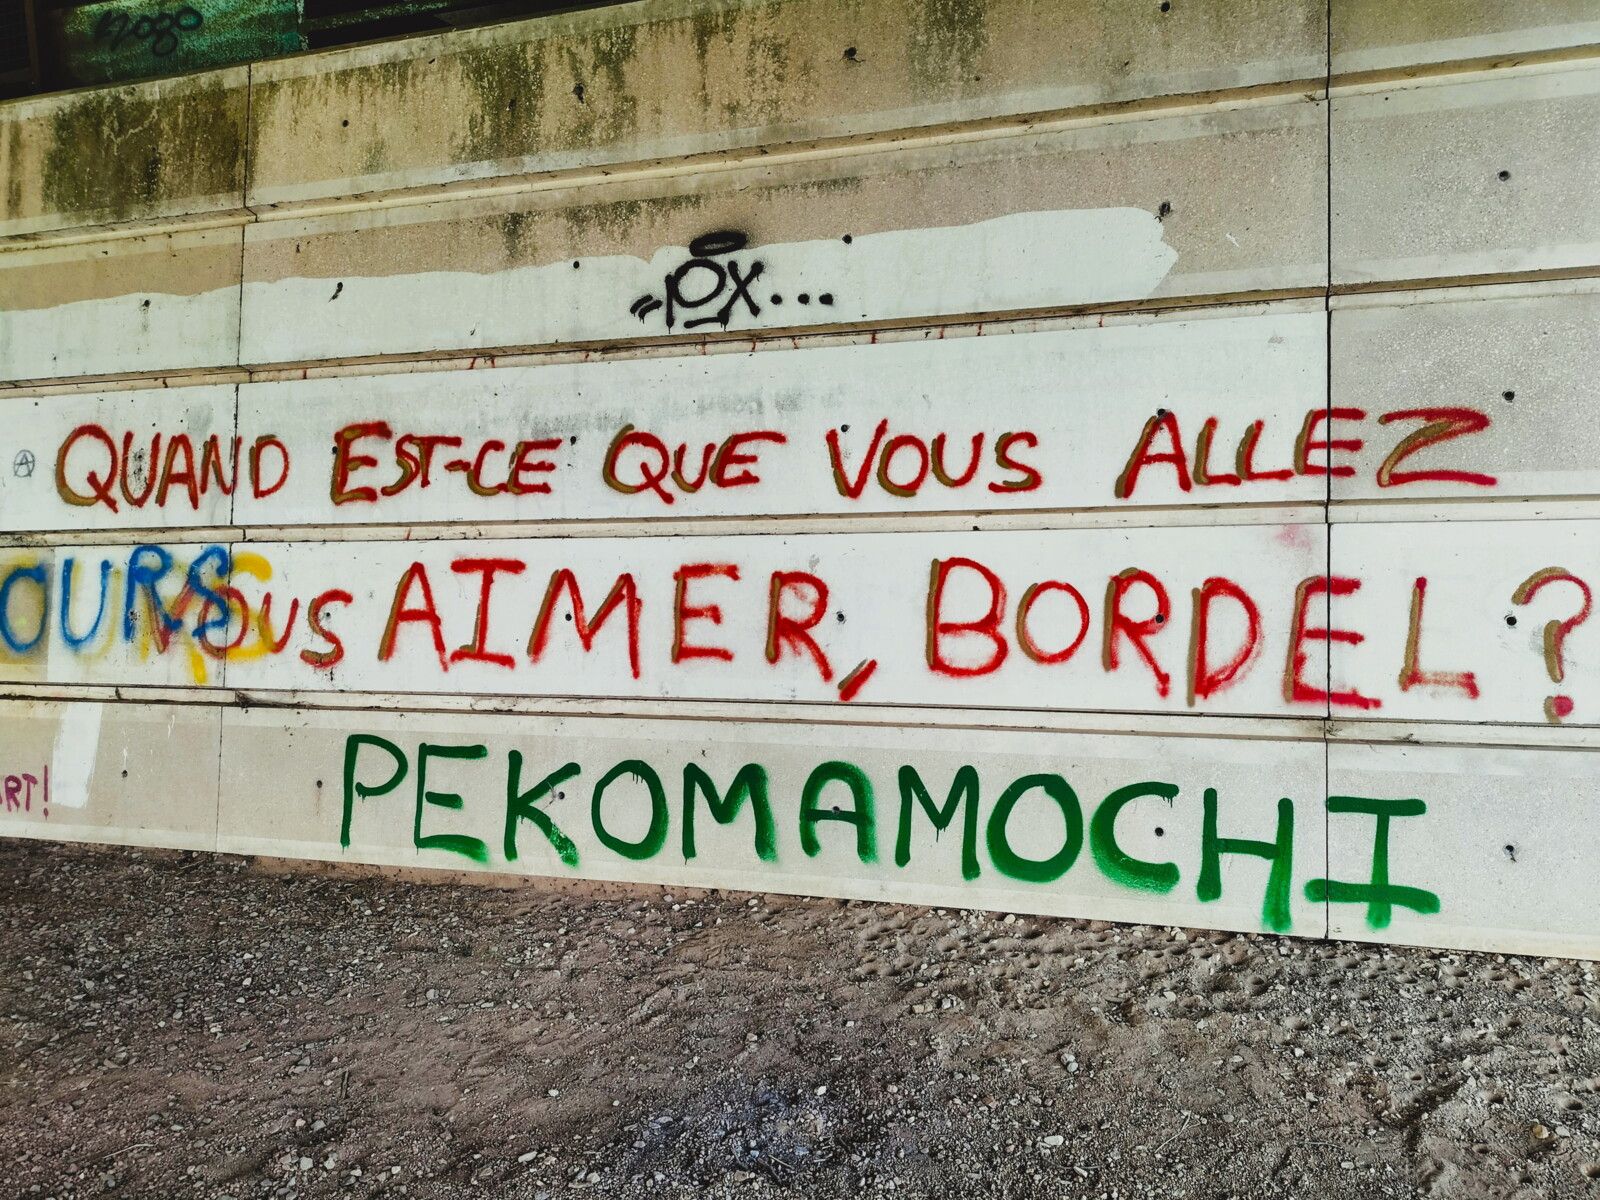 POX...
QUAND EST-CE QUE VOUS ALLEZ
OURS OUS AIMER, BORDEL ?
PEKOMAMOCHI
ART!